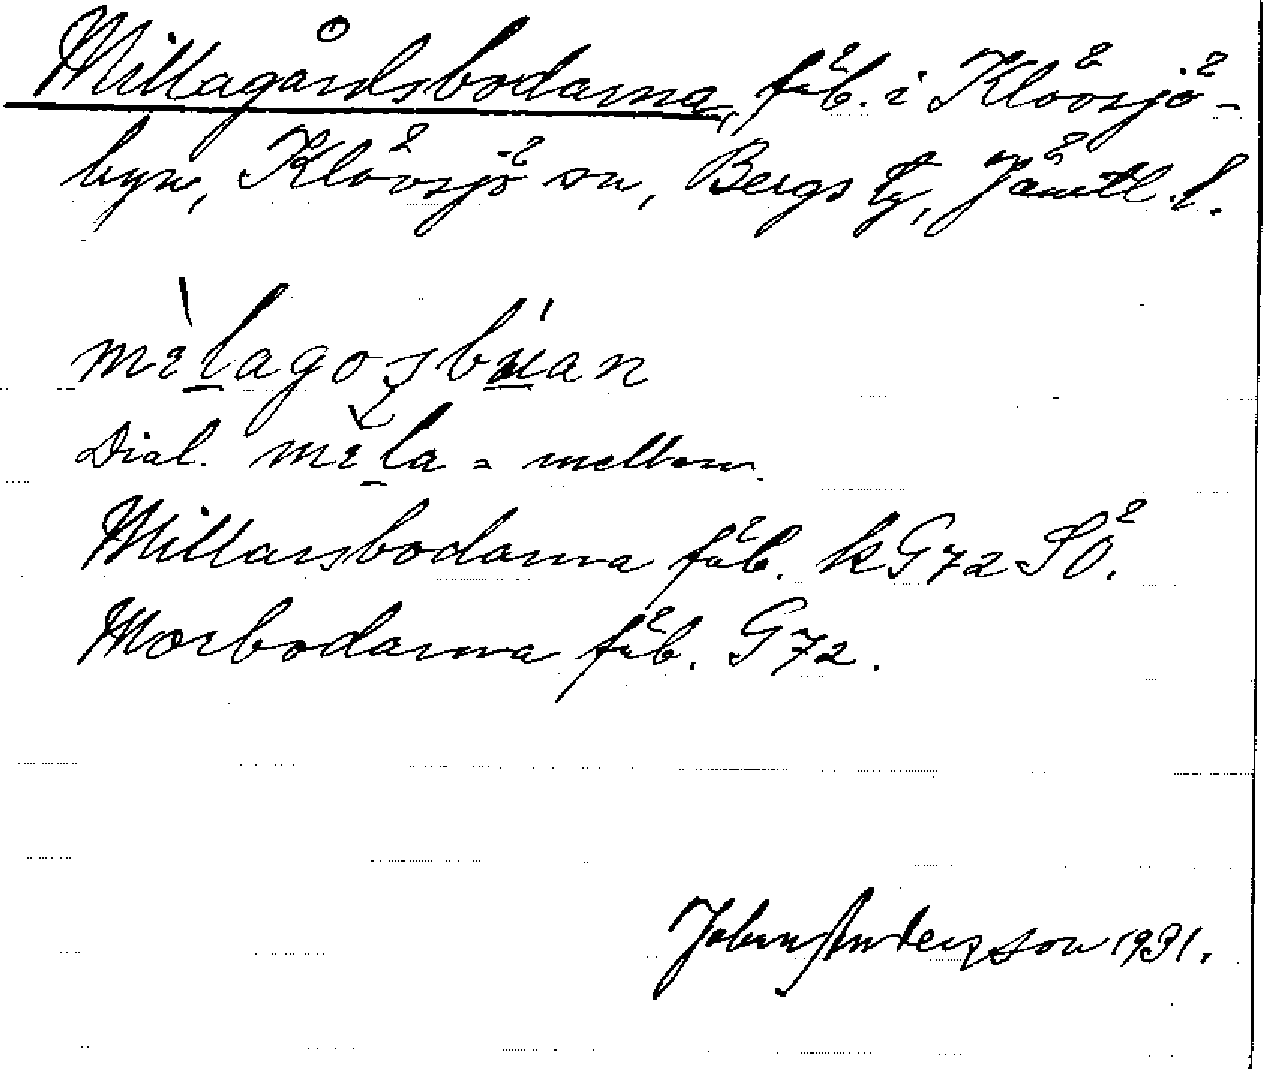 Millagårdsbodarna, fäb. i Klövsjö-
byn, Klövsjö sn, Bergs tg, Jämtl. l.
mìlagosbúan
Dial. mìla = mellom.
Millarsbodarna fäb. kG72SÖ.
Morbodarna fäb. G72.
John Anderson 1931.